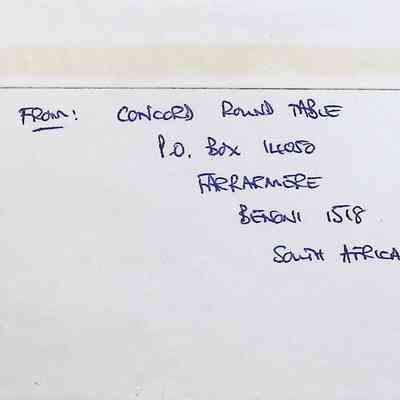 FROM: CONCORD ROUND TABLE
P.O. BOX 14050
FARRARMERE
BENONI 1518
SOUTH AFRICA